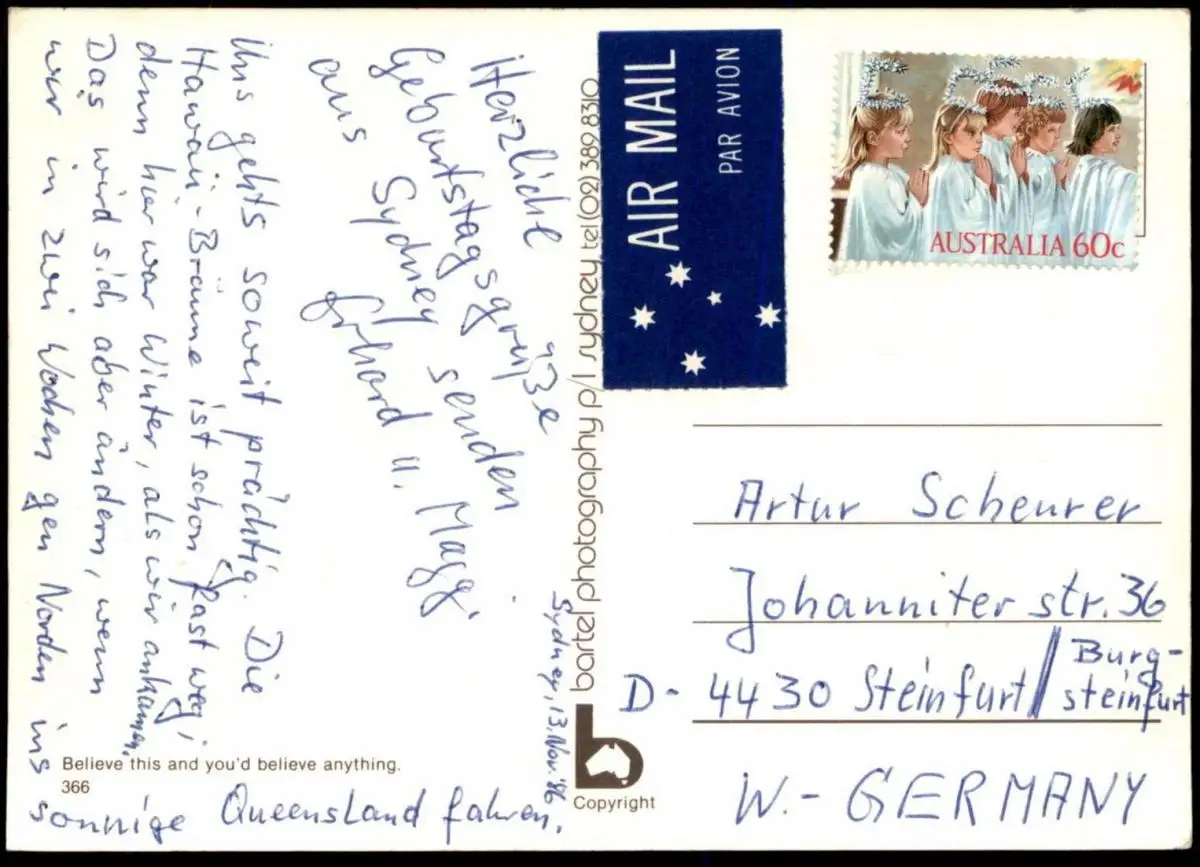 Sydney, 13. Nov. '86
Herzliche
Geburtstagsgrüße
aus Sydney senden
Erhard u. Maggi
Uns gehts soweit prächtig. Die
Hawaii-Bräune ist schon fast weg,
denn hier war Winter, als wir ankamen.
Das wird sich aber ändern, wenn
wir in zwei Wochen gen Norden ins
sonnige Queensland fahren.
Believe this and you'd believe anything.
366
bartel photography p/l sydney tel (02) 389 8310
b
Copyright
AIR MAIL
PAR AVION
AUSTRALIA 60c
Artur Scheurer
Johanniterstr. 36
D - 4430 Steinfurt / Burg-
steinfurt
W. - GERMANY